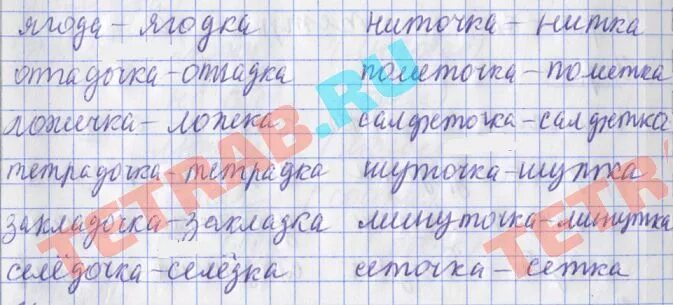 ягода – ягодка
отгадочка – отгадка
ложечка – ложка
тетрадочка – тетрадка
закладочка – закладка
селёдочка – селёдка
ниточка – нитка
пометочка – пометка
салфеточка – салфетка
шуточка – шутка
минуточка – минутка
сеточка – сетка
TETRAB.RU
TETR